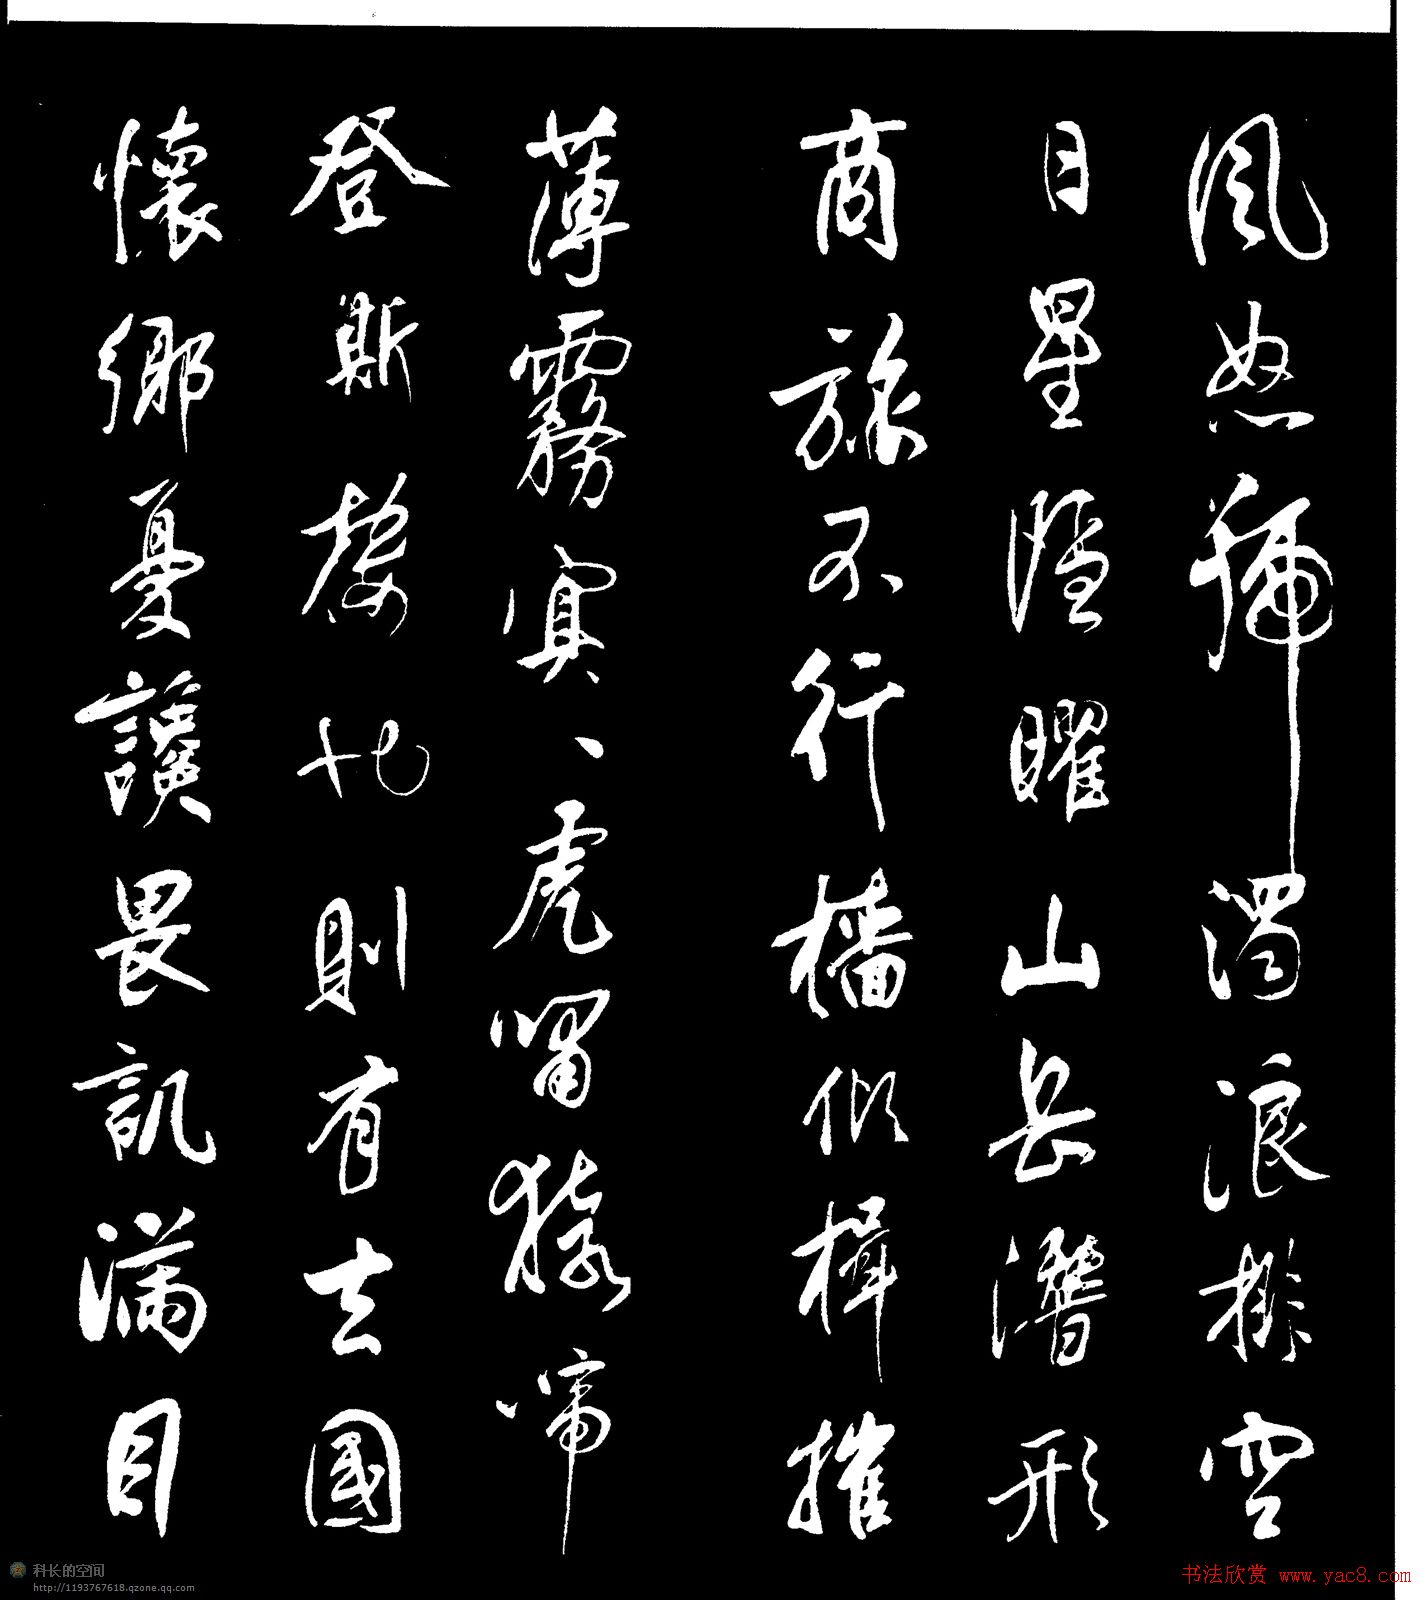 風怒號濁浪排空
日星隱曜山岳潛形
商旅不行檣傾楫摧
薄霧冥、虎嘯猿啼
登斯樓也則有去國
懷鄉憂讒畏譏滿目
科长的空间
http://1193767618.qzone.qq.com
书法欣赏 www.yac8.com